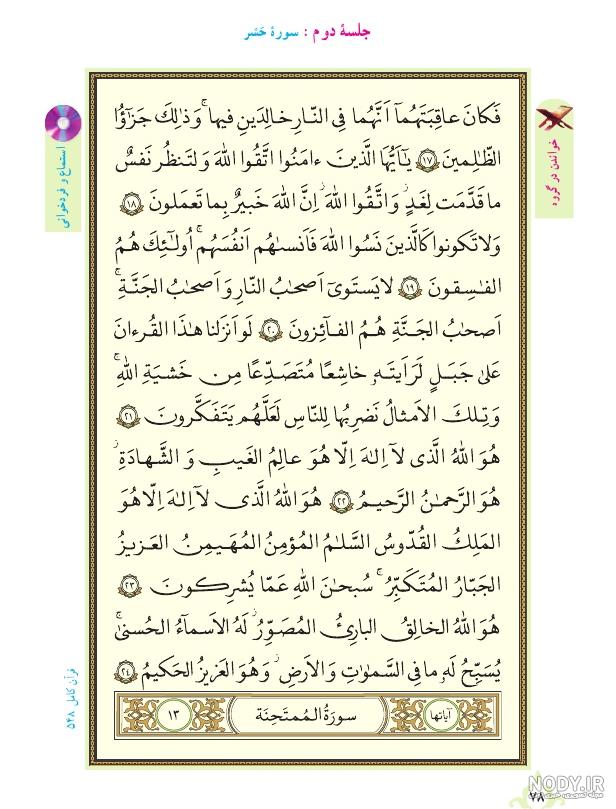 جلسهٔ دوم : سورهٔ حَشر
خواندن در گروه
استماع و فردخوانی
فَكانَ عاقِبَتَهُمآ اَنَّهُما فِی النّارِ خالِدَینِ فیها ۚ وَ ذٰلِكَ جَزٰٓؤُا
الظّٰلِمینَ ﴿۱۷﴾ یٰٓاَیُّهَا الَّذینَ ءامَنُوا اتَّقُوا اللّٰهَ وَلتَنظُر نَفسٌ
ما قَدَّمَت لِغَدٍ ۖ وَاتَّقُوا اللّٰهَ ۚ اِنَّ اللّٰهَ خَبیرٌ بِما تَعمَلونَ ﴿۱۸﴾
وَلا تَكونوا كَالَّذینَ نَسُوا اللّٰهَ فَاَنسٰىهُم اَنفُسَهُم ۚ اُولٰٓئِكَ هُمُ
الفٰسِقونَ ﴿۱۹﴾ لا یَستَوی اَصحٰبُ النّارِ وَ اَصحٰبُ الجَنَّةِ ۚ
اَصحٰبُ الجَنَّةِ هُمُ الفآئِزونَ ﴿۲۰﴾ لَو اَنزَلنا هٰذَا القُرءانَ
عَلیٰ جَبَلٍ لَرَاَیتَهٗ خاشِعًا مُتَصَدِّعًا مِن خَشیَةِ اللّٰهِ ۚ
وَ تِلكَ الاَمثالُ نَضرِبُها لِلنّاسِ لَعَلَّهُم یَتَفَكَّرونَ ﴿۲۱﴾
هُوَ اللّٰهُ الَّذی لآ اِلٰهَ اِلّا هُوَ عالِمُ الغَیبِ وَ الشَّهادَةِ ۖ
هُوَ الرَّحمٰنُ الرَّحیمُ ﴿۲۲﴾ هُوَ اللّٰهُ الَّذی لآ اِلٰهَ اِلّا هُوَ
المَلِكُ القُدّوسُ السَّلٰمُ المُؤمِنُ المُهَیمِنُ العَزیزُ
الجَبّارُ المُتَكَبِّرُ ۚ سُبحٰنَ اللّٰهِ عَمّا یُشرِكونَ ﴿۲۳﴾
هُوَ اللّٰهُ الخالِقُ البارِئُ المُصَوِّرُ ۖ لَهُ الاَسمآءُ الحُسنیٰ ۚ
یُسَبِّحُ لَهٗ ما فِی السَّمٰوٰتِ وَ الاَرضِ ۖ وَ هُوَ العَزیزُ الحَكیمُ ﴿۲۴﴾
آیاتها سورَةُ المُمتَحِنَة ۱۳
قرآن کامل ۵۴۸
۷۸
NODY.IR